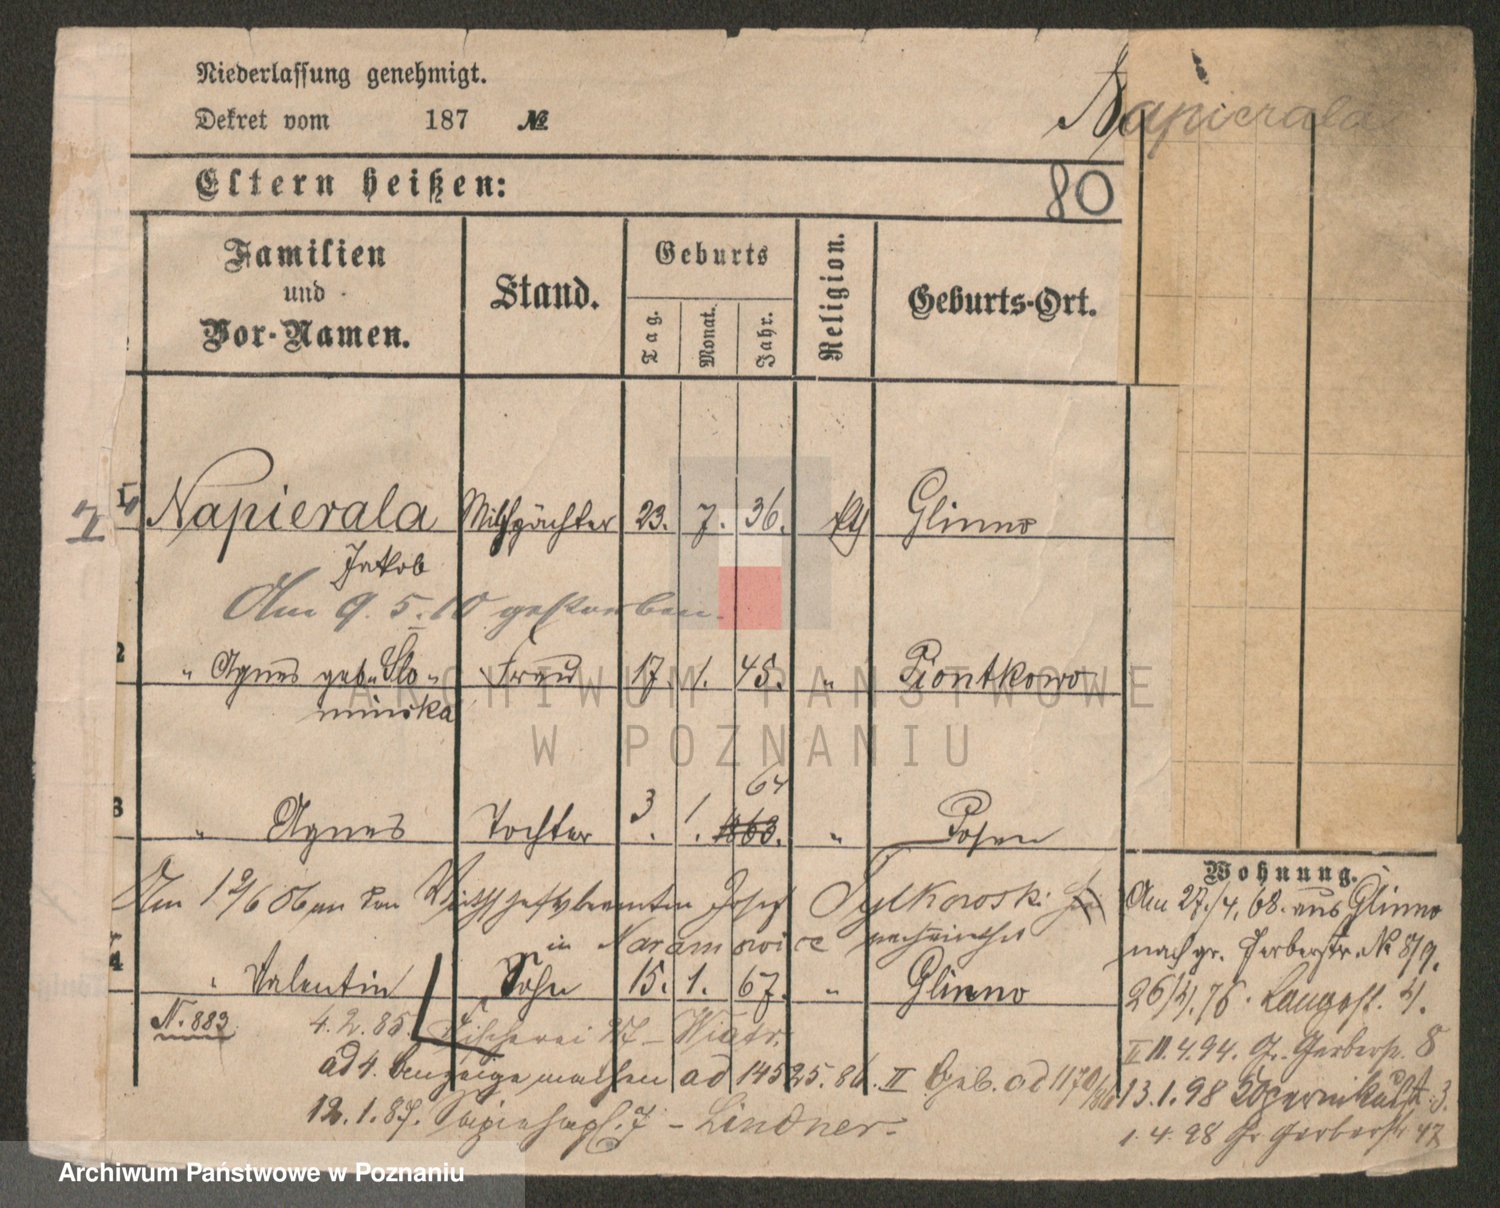 Niederlassung genehmigt.
Dekret vom 187 №
Napierala
Eltern heißen:
80
Familien
und
Vor-Namen.
Stand.
Geburts
Tag.
Monat.
Jahr.
Religion.
Geburts-Ort.
Napierala Milchpächter 23. 7. 36. kth Glinno
Jakob
Am 9. 5. 10 gestorben.
2 " Agnes geb. Slo- Frau 17. 1. 45. " Piontkowo
minska
64
3 " Agnes Tochter 3. 1. 1863. " Posen
Am 12/6 06 an den Josef Tylkowski
in Naramowice
4 " Valentin Sohn 15. 1. 67. " Glinno
N. 883 4. 2. 85. Fischerei 27 – Wiatr.
ad 4. ad 145 25. 86. II Geb. ad 1170/86
12. 1. 87. Sapiehapl. 7 – Lindner.
Wohnung.
Am 27./4. 68. aus Glinno
nach gr. Gerberstr. № 8/9.
26/4. 76. Langestr. 4.
II 11. 4. 94. Gr. Gerberstr. 8
13. 1. 98 3.
1. 4. 98 Gr Gerberstr 47
Archiwum Państwowe w Poznaniu
ARCHIWUM PAŃSTWOWE
W POZNANIU